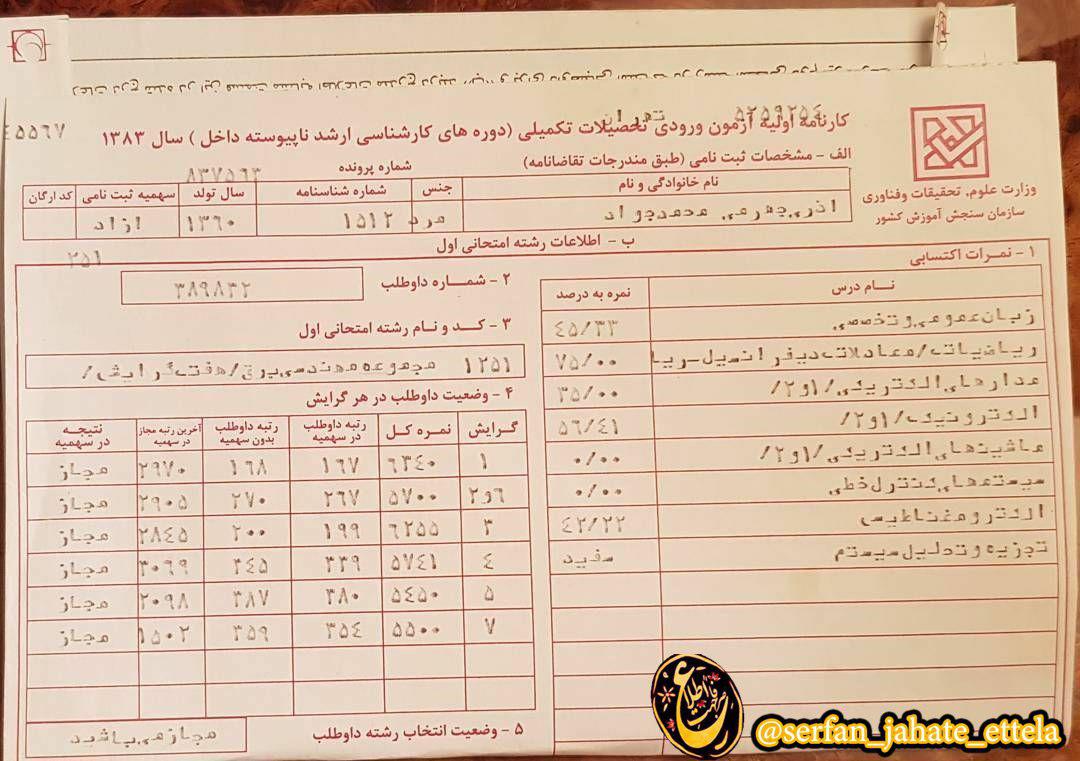 ۵۲۵۹۲۵۴ تهران
۴۵۵۶۷
کارنامه اولیه آزمون ورودی تحصیلات تکمیلی (دوره های کارشناسی ارشد ناپیوسته داخل ) سال ۱۳۸۳
وزارت علوم, تحقیقات وفناوری
سازمان سنجش آموزش کشور
الف - مشخصات ثبت نامی (طبق مندرجات تقاضانامه)
شماره پرونده ۸۳۷۵۶۳
نام خانوادگی و نام جنس شماره شناسنامه سال تولد سهمیه ثبت نامی کد ارگان
اذری جهرمی محمدجواد مرد ۱۵۱۲ ۱۳۶۰ ازاد
ب - اطلاعات رشته امتحانی اول
۲۵۱
۱ - نمرات اکتسابی
نام درس نمره به درصد
زبان عمومی وتخصصی ۴۵/۳۳
ریاضیات/معادلات دیفرانسیل-ریا ۷۵/۰۰
مدارهای الکتریکی/۱و۲/ ۳۵/۰۰
الکترونیک/۱و۲/ ۵۶/۴۱
ماشینهای الکتریکی/۱و۲/ ۰/۰۰
سیستمهای کنترل خطی ۰/۰۰
الکترومغناطیس ۴۲/۲۲
تجزیه وتحلیل سیستم سفید
۲ - شماره داوطلب ۳۸۹۸۳۲
۳ - کد و نام رشته امتحانی اول
۱۲۵۱ مجموعه مهندسی برق/هفت گرایش/
۴ - وضعیت داوطلب در هر گرایش
گرایش نمره کل رتبه داوطلب در سهمیه رتبه داوطلب بدون سهمیه آخرین رتبه مجاز در سهمیه نتیجه در سهمیه
۱ ۶۳۴۰ ۱۶۷ ۱۶۸ ۲۹۷۰ مجاز
۲و۶ ۵۷۰۰ ۲۶۷ ۲۷۰ ۲۹۰۵ مجاز
۳ ۶۲۵۵ ۱۹۹ ۲۰۰ ۲۸۴۵ مجاز
۴ ۵۷۴۱ ۳۳۹ ۳۴۵ ۳۰۶۹ مجاز
۵ ۵۴۵۰ ۳۸۰ ۳۸۷ ۲۰۹۸ مجاز
۷ ۵۵۰۰ ۳۵۴ ۳۵۹ ۱۵۰۲ مجاز
۵ - وضعیت انتخاب رشته داوطلب مجازمی باشید
صرفا جهت اطلاع
@serfan_jahate_ettela